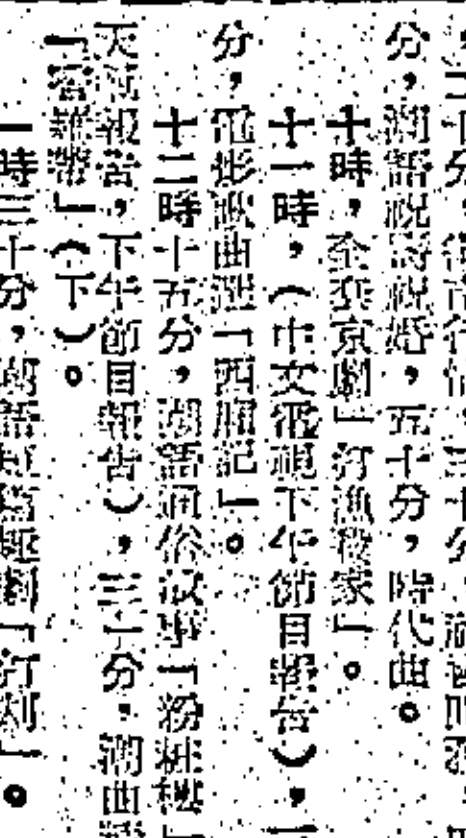 二十分，三十分，
分，潮語祝壽祝婚，五十分，時代曲。
十時，全套京劇「打漁殺家」。
十一時，（中文電視下午節目報告），
分，電影歌曲選「西廂記」。
十二時十五分，潮語通俗故事「粉粧樓」
天氣報告，下午節目報告），三十分，潮曲
「（下）。
一時三十分，潮語短篇趣劇「打劫」。